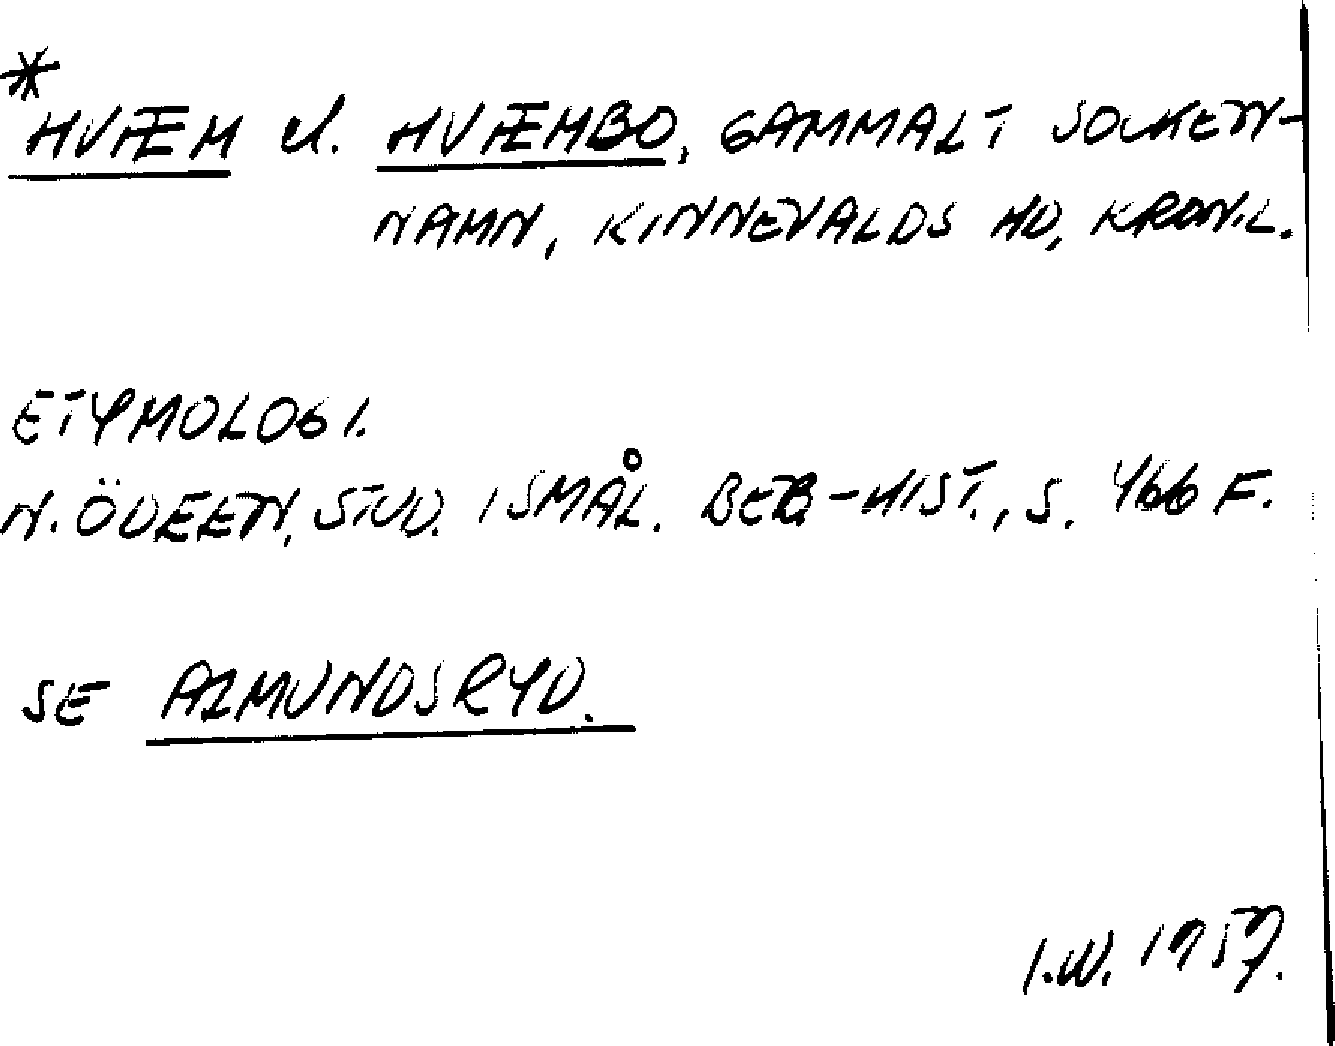 *
HVÆM el. HVÆMBO, GAMMALT SOCKEN-
NAMN, KINNEVALDS HD, KRON.L.
ETYMOLOGI.
N. ÖDEEN, STUD. I SMÅL. BEB-HIST., S. 466 F.
SE ALMUNDSRYD.
I.W. 1957.